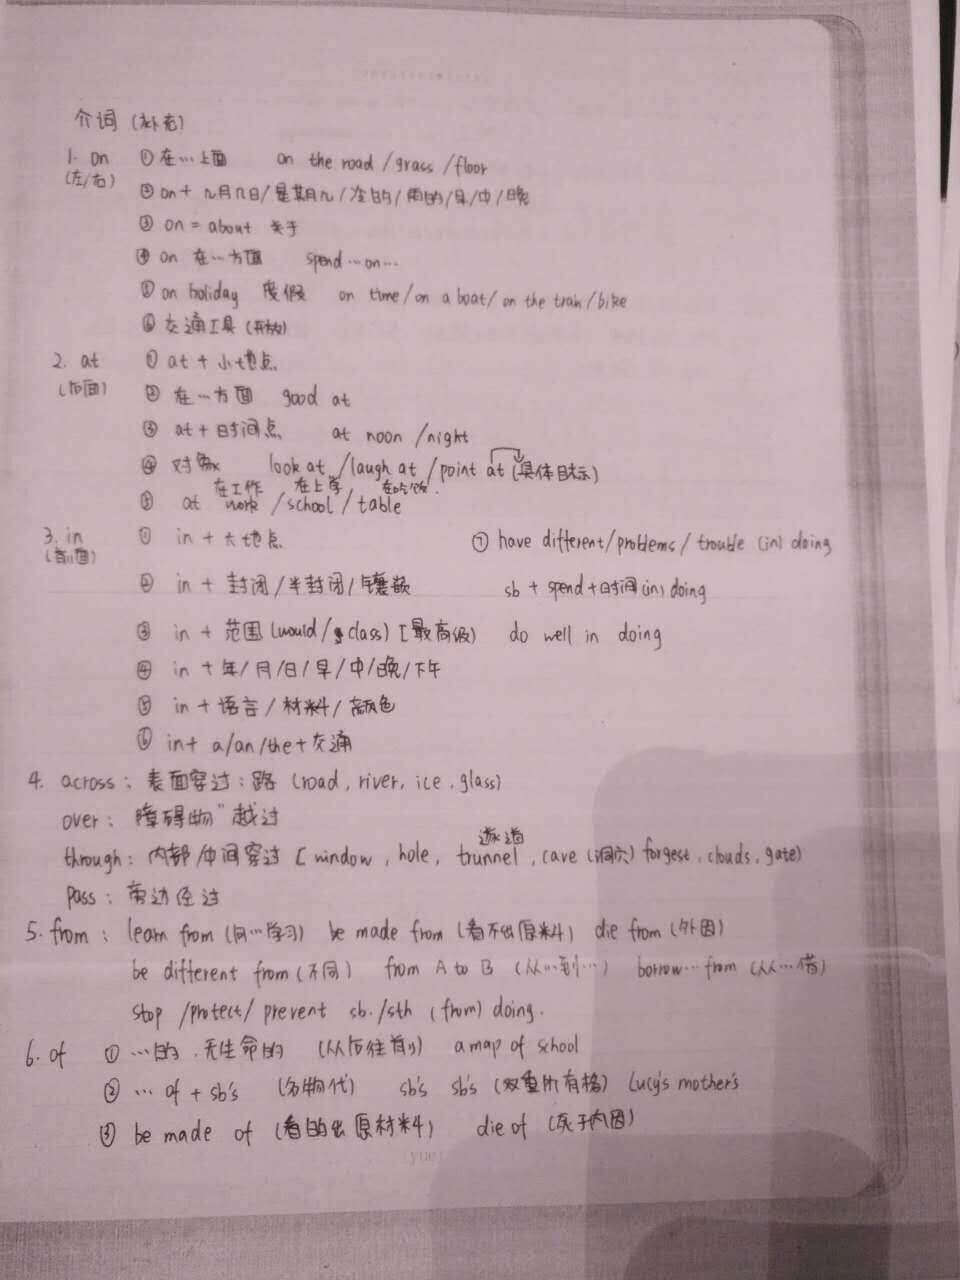 介词 (补充)
1. on ①在…上面 on the road / grass / floor
(左/右)
②on + 几月几日/星期几/ 的/雨的/早/中/晚
③ on = about 关于
④ on 在…方面 spend … on …
⑤ on holiday 度假 on time / on a boat / on the train / bike
⑥ 交通工具 (开放)
2. at ① at + 小地点
(后面)
② 在…方面 good at
③ at + 时间点 at noon / night
④ 对 look at / laugh at / point at (具体目标)
在工作 在上学 在吃饭
⑤ at work / school / table
3. in ① in + 大地点 ⑦ have different / problems / trouble (in) doing
(前面)
② in + 封闭 / 半封闭 / 镶嵌 sb + spend + 时间 (in) doing
③ in + 范围 (would / class) [最高级) do well in doing
④ in + 年 / 月 / 日 / 早 / 中 / 晚 / 下午
⑤ in + 语言 / 材料 / 颜色
⑥ in + a/an/the + 交通
4. across : 表面穿过 : 路 (road, river, ice, glass)
over : 障碍物" 越过
隧道
through : 内部 / 中间穿过 [ window, hole, trunnel, cave (洞穴) forgest, clouds, gate)
pass : 旁边经过
5. from : learn from (向…学习) be made from (看不出原料) die from (外因)
be different from (不同) from A to B (从…到…) borrow … from (从…借)
stop / protect / prevent sb. / sth (from) doing.
6. of ① …的 . 无生命的 (从后往前) a map of school
② … of + sb's (名物代) sb's sb's (双重所有格) Lucy's mother's
③ be made of (看的出原材料) die of (死于内因)
(yue)